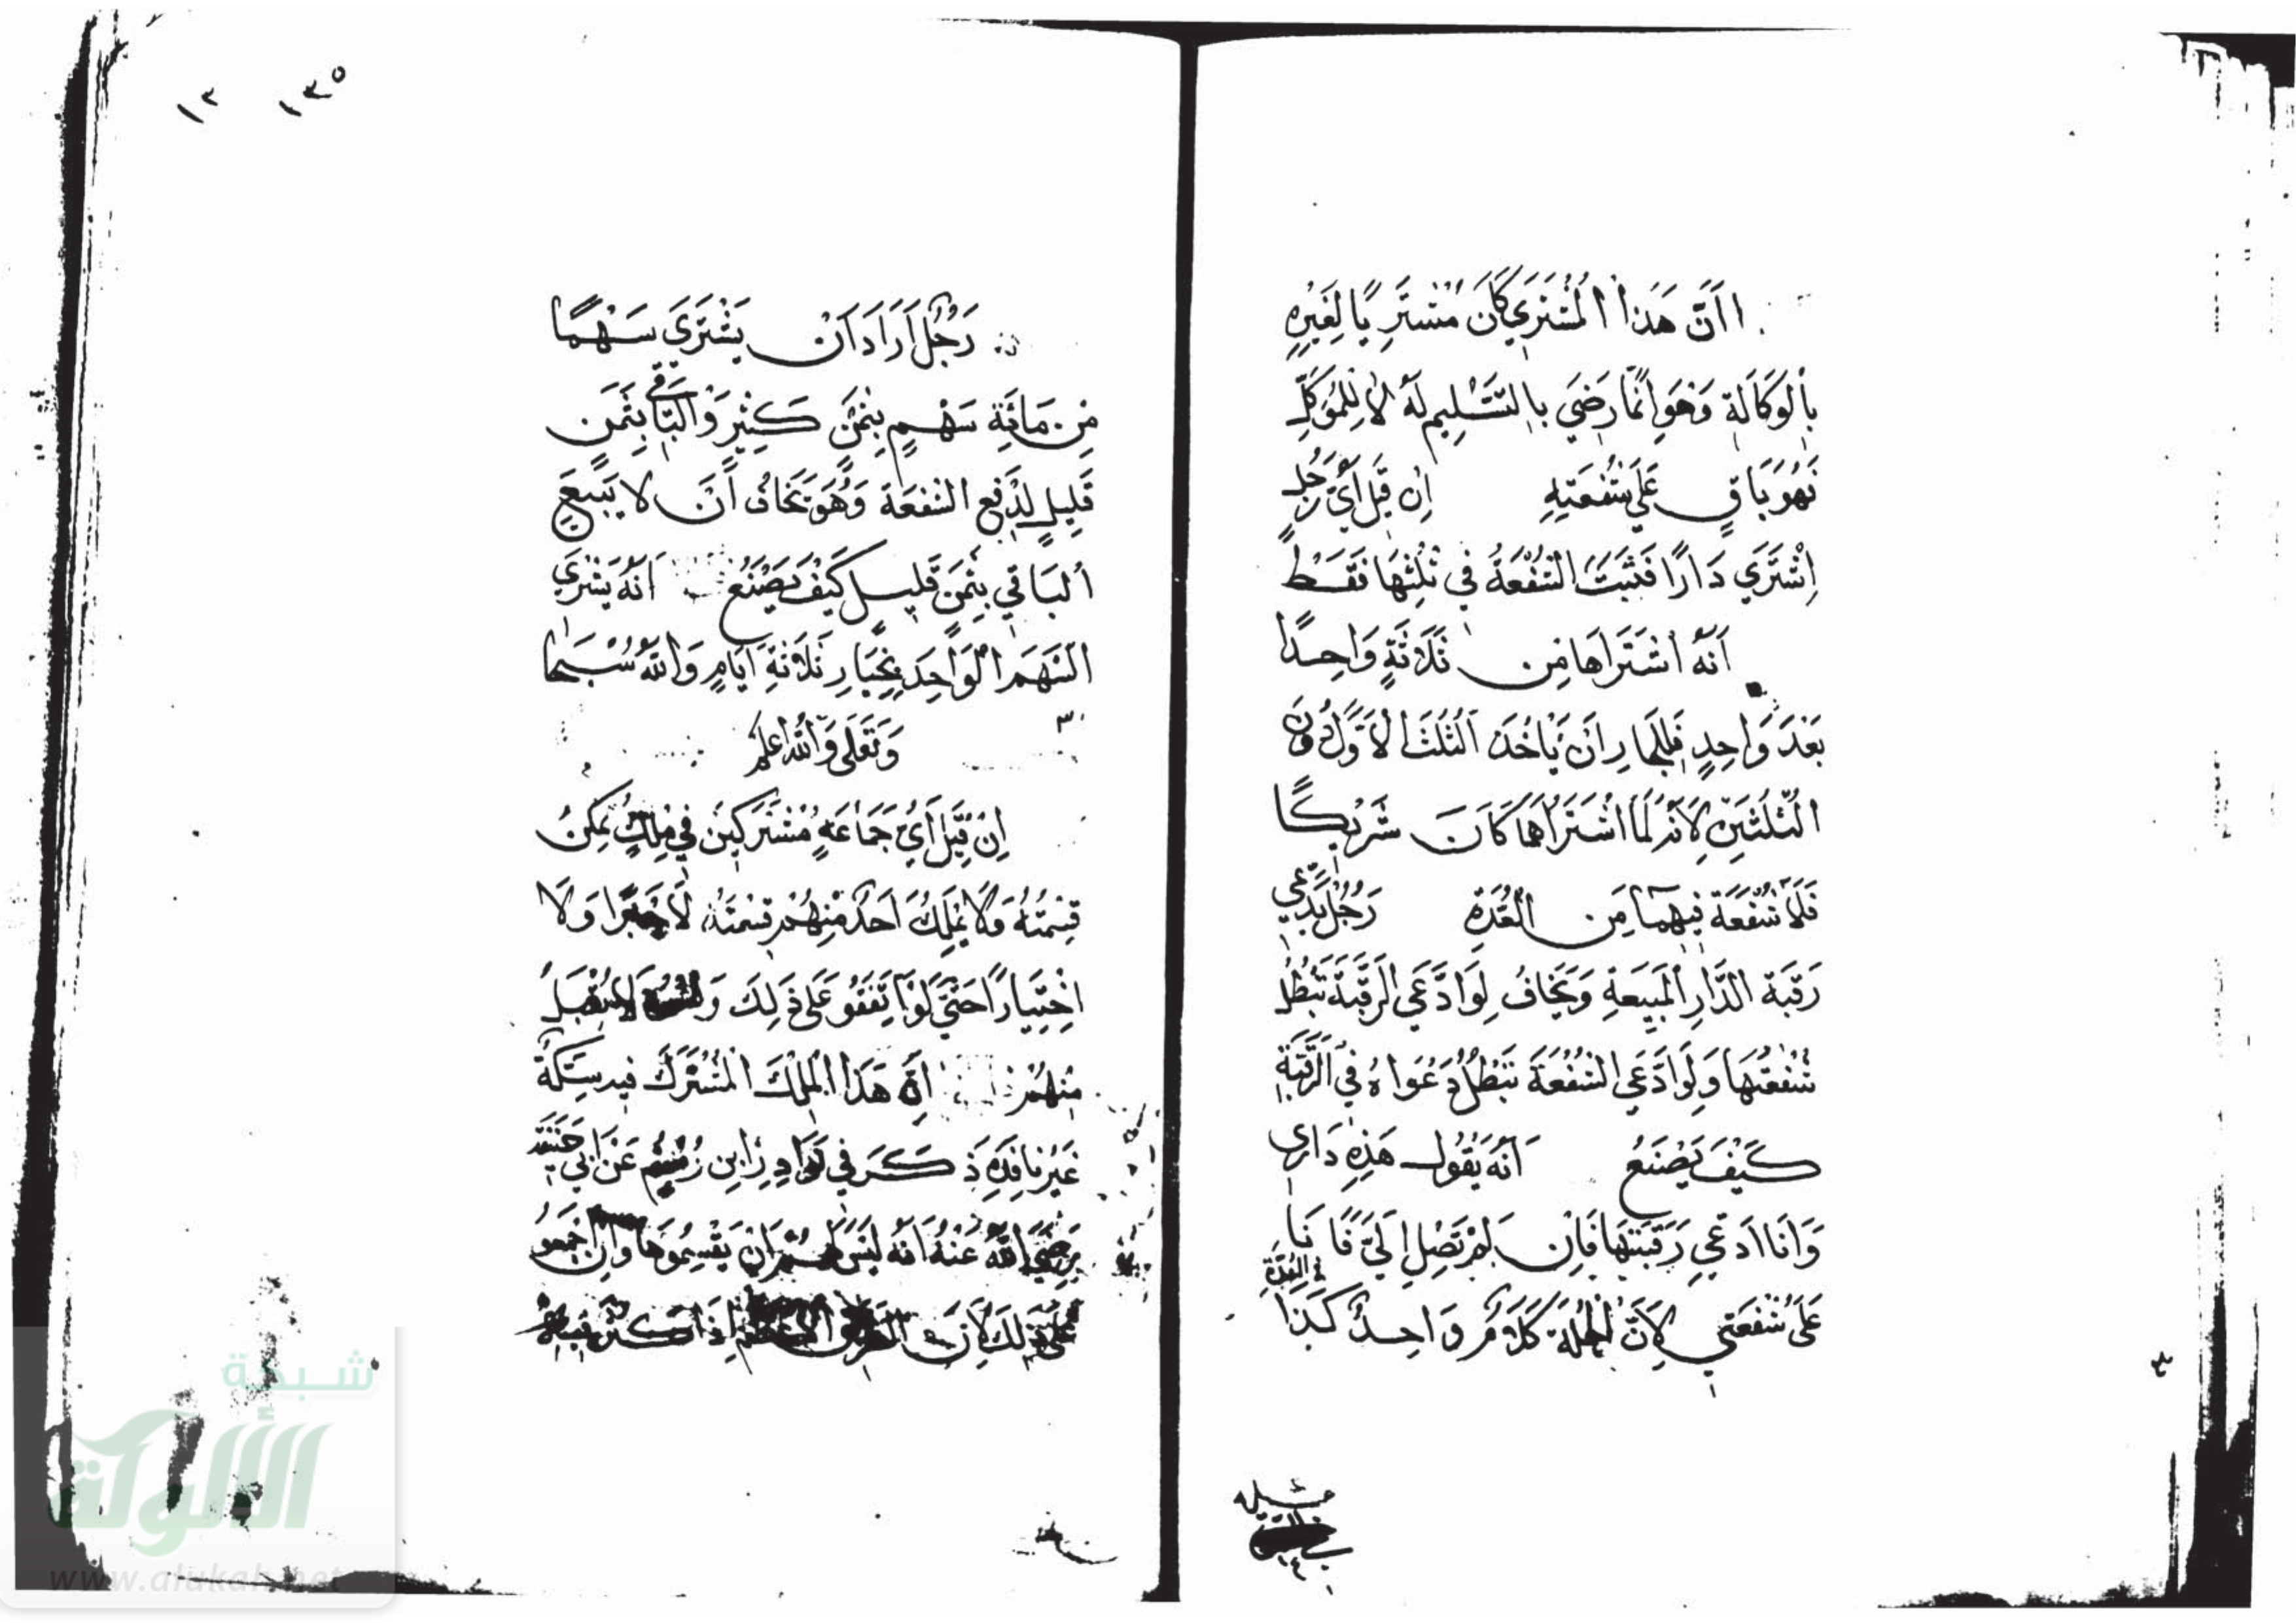 اَنَّ هَذا المُشْتَرِي كَانَ مُشْتَرِيًا لِغَيْرِهِ
بِالْوَكَالَةِ وَهُوَ اِنَّمَا رَضِيَ بِالتَّسْلِيمِ لَهُ لَا لِلْمُوَكِّلِ
فَهُوَ بَاقٍ عَلَى شُفْعَتِهِ اِن قِيلَ أَيُّ رَجُلٍ
اِشْتَرَي دَارًا فَثَبَتَ الشُّفْعَةُ فِي ثُلُثِهَا فَقَطْ
اَنَّهُ اشْتَرَاهَا مِن ثَلَاثَةٍ وَاحِدًا
بَعْدَ وَاحِدٍ فَلِلْجَارِ اَن يَاخُذَ الثُلُثَ الاَوَّلَ دُونَ
الثُّلُثَيْنِ لِاَنَّهُ لَمَّا اشْتَرَاهَا كَانَ شَرِيكًا
فَلَا شُفْعَةَ فِيهِمَا مِن العُدَّةِ رَجُلٌ يَدَّعِي
رَقَبَة الدَّارِ المَبِيعَةِ وَيَخَافُ لِوَادَّعَي الرَقَبَةَ تَبْطُلُ
شُفْعَتُهَا وَلَوادَّعَي الشُفْعَةَ تَبْطُلُ دَعْوَاهُ فِي الرَّقَبَةِ
كَيْفَ يَصْنَعُ اَنَّهُ يَقُولُ هَذِهِ دَارِي
وَاَنَا اَدَّعِي رَقَبَتَهَا فَاِن لَمْ تَصِلْ اِلَيَّ فَاَنَا
عَلَى شُفْعَتِي لِاَنَّ الجُمْلَةَ كَلَامٌ وَاحِدٌ كَذَا
فِي العُدَّةِ
١٣٥ ١٣
رَجُلٌ اَرَادَ اَنْ يَشْتَرِيَ سَهْمًا
مِن مَائَةِ سَهْمٍ بِثَمَنٍ كَثِيرٍ وَالْبَاقِي بِثَمَنٍ
قَلِيلٍ لِدَفْعِ الشفْعَة وَهُوَ يَخَافُ اَنْ لَا يَبِيعَ
البَاقِي بِثَمَنٍ قَلِيلٍ كَيْفَ يَصْنَعُ اَنَّهُ يَشْتَرِي
السَّهَمَ الْوَاحِدَ بِخِيَارِ ثَلَاثَةِ اَيَّامٍ وَاللّٰهُ سُبْحَا
وَتَعَلَى وَاَللّٰه اعلم
اِن قِيلَ اَيُّ جَمَاعَةٍ مُشْتَرَكِينَ فِي مِلْكٍ يُمْكِنُ
قِسْمَتُهُ وَلَا يَمْلِكُ اَحَدٌ مِنْهُمْ قِسْمَتَهُ لَا جَبْرًا وَلَا
اخْتِيَارًا حَتَّى لَوْ اتَّفَقُو عَلَى ذَلِكَ لَا يُقْبَلُ
مِنْهُمْ اَنَّ هَذَا المِلْكَ المُشْتَرَكَ فِيهِ سِكَّةٌ
غَيْرُ نَافِذَةٍ ذَكَرَ فِي نَوَادِرِ ابن رُسْتُم عَنْ ابي حَنيفَة
رَضِيَ اللّٰهُ عَنْهُ اَنَّهُ لَيْسَ لَهُمْ اَنْ يَقْسِمُوهَا وَاِن اجْمَعُو
عَلَى ذَلِكَ لِاَنَّ اِذَا كَثُرَ فِيهِ